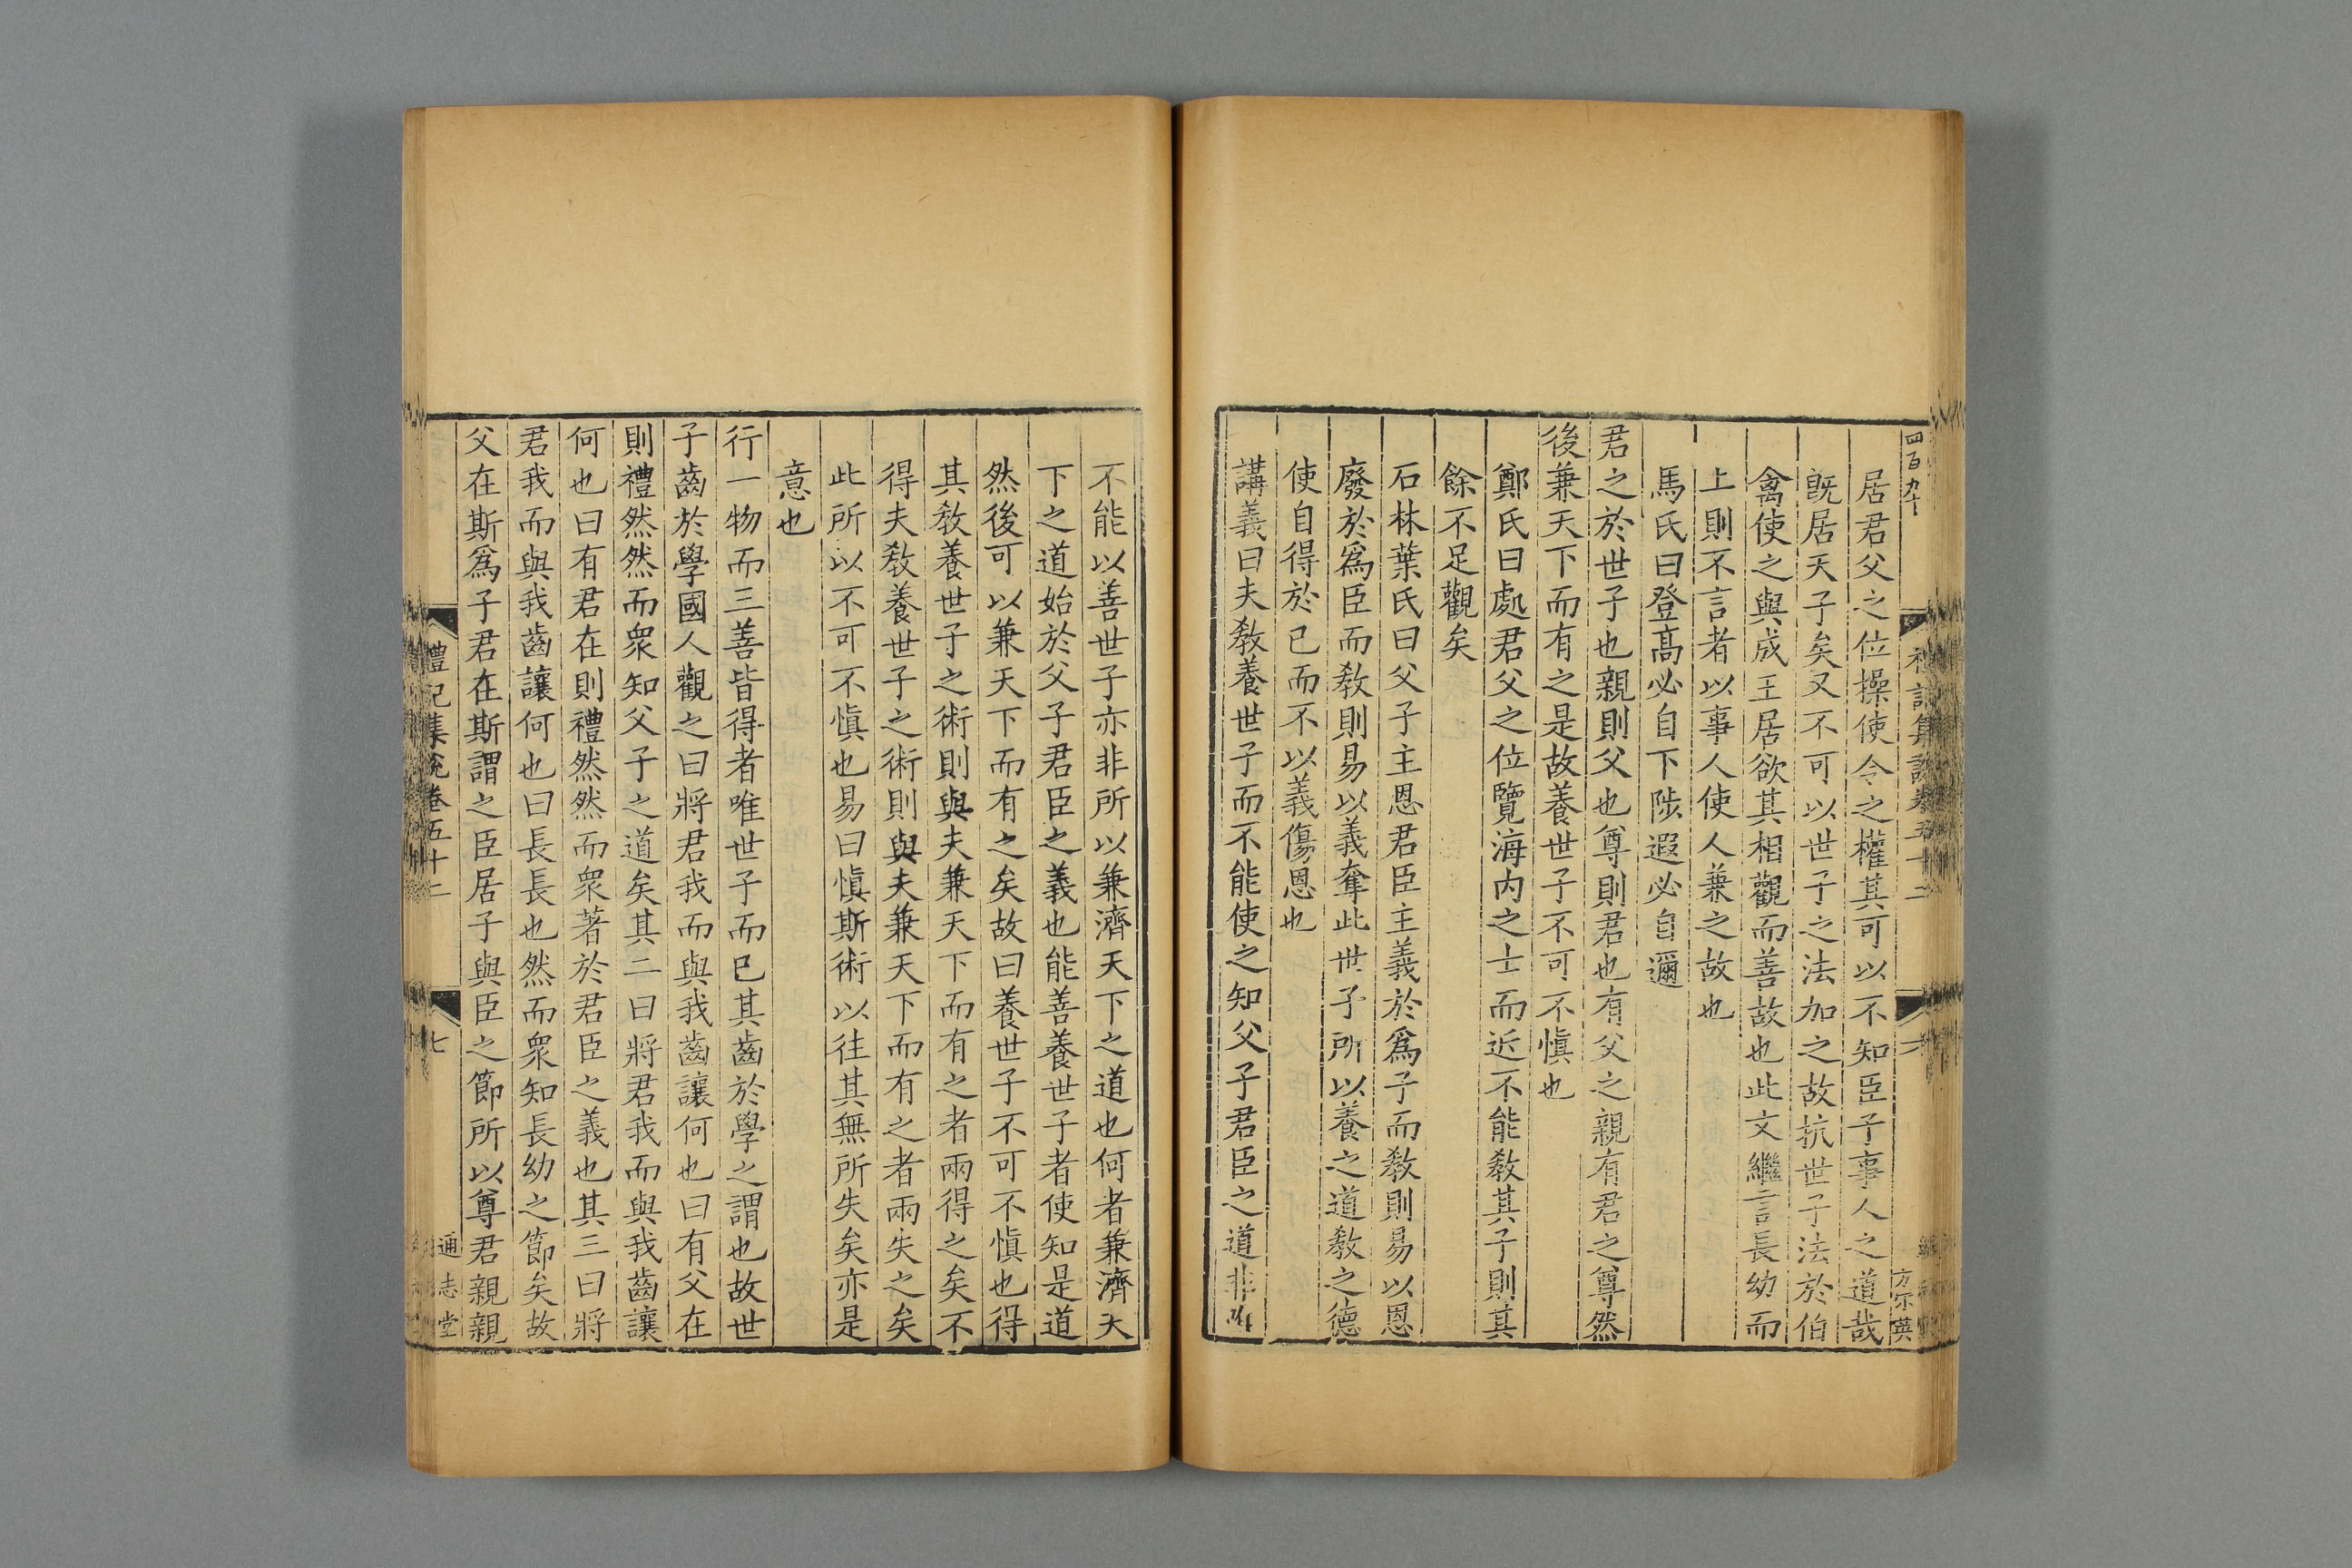 四百九十
居君父之位操使令之權其可以不知臣子事人之道哉
旣居天子矣又不可以世子之法加之故抗世子法於伯
禽使之與成王居欲其相觀而善故也此文繼言長幼而
上則不言者以事人使人兼之故也
馬氏曰登髙必自下陟遐必自邇
君之於世子也親則父也尊則君也有父之親有君之尊然
後兼天下而有之是故養世子不可不愼也
鄭氏曰處君父之位覽海内之士而近不能敎其子則其
餘不足觀矣
石林葉氏曰父子主恩君臣主義於爲子而敎則易以恩
廢於爲臣而敎則易以義奪此世子所以養之道敎之德
使自得於已而不以義傷恩也
講義曰夫敎養世子而不能使之知父子君臣之道非
不能以善世子亦非所以兼濟天下之道也何者兼濟天
下之道始於父子君臣之義也能善養世子者使知是道
然後可以兼天下而有之矣故曰養世子不可不愼也得
其敎養世子之術則與夫兼天下而有之者兩得之矣不
得夫敎養世子之術則與夫兼天下而有之者兩失之矣
此所以不可不愼也易曰愼斯術以往其無所失矣亦是
意也
行一物而三善皆得者唯世子而已其齒於學之謂也故世
子齒於學國人觀之曰將君我而與我齒讓何也曰有父在
則禮然然而衆知父子之道矣其二曰將君我而與我齒讓
何也曰有君在則禮然然而衆著於君臣之義也其三曰將
君我而與我齒讓何也曰長長也然而衆知長幼之節矣故
父在斯爲子君在斯謂之臣居子與臣之節所以尊君親親
禮記集說卷五十二
七
通志堂